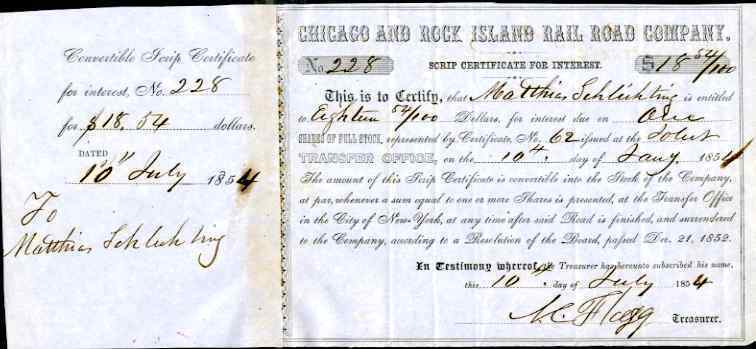 Convertible Scrip Certificate
for interest, No. 228
for $18.54 dollars.
DATED
10" July 1854
To
Matthias Schlichting
CHICAGO AND ROCK ISLAND RAIL ROAD COMPANY.
No 228 SCRIP CERTIFICATE FOR INTEREST. $18 54/100
This is to Certify, that Matthias Schlichting is entitled
to Eighteen 54/100 Dollars, for interest due on One
SHARES OF FULL STOCK, represented by Certificate, No. 62 issued at the Joliet
TRANSFER OFFICE, on the 10th. day of Jany. 1854
The amount of this Scrip Certificate is convertible into the Stock of the Company,
at par, whenever a sum equal to one or more Shares is presented, at the Transfer Office
in the City of New York, at any time after said Road is finished, and surrendered
to the Company, according to a Resolution of the Board, passed Dec. 21, 1852.
In Testimony whereof, the Treasurer has hereunto subscribed his name,
this 10th day of July 1854
M.C. Flagg Treasurer.